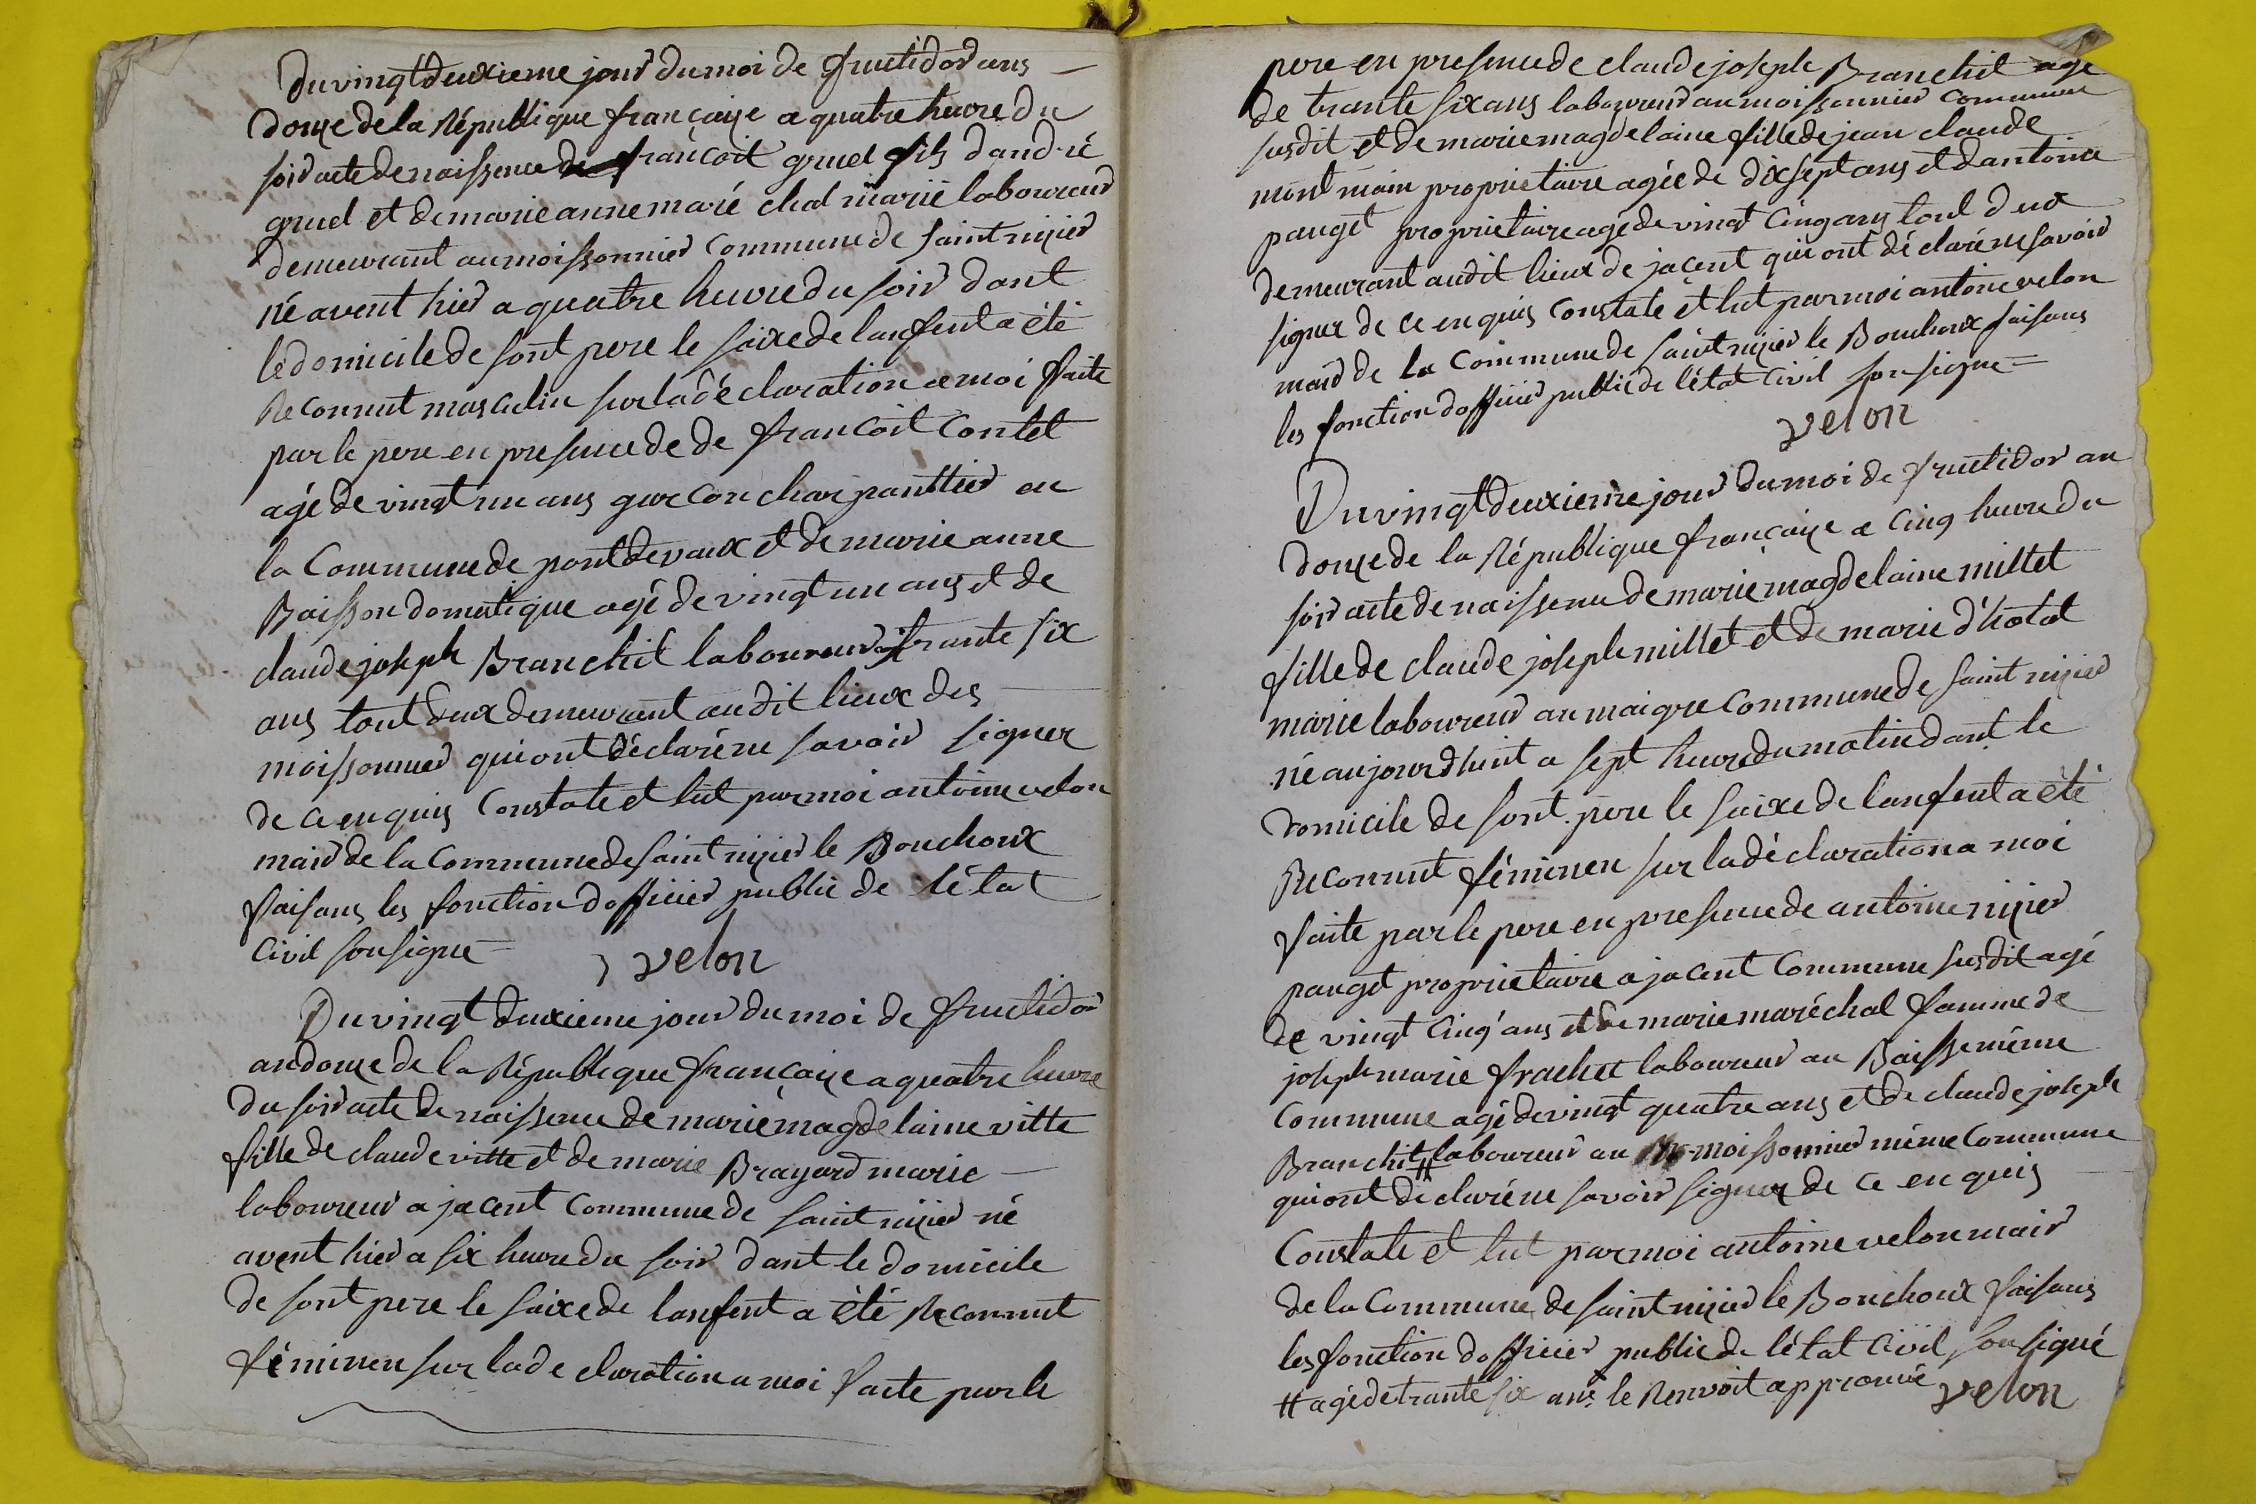 Du vingt deuxieme jour du moi de fructidor ans
douze de la République françaize a quatre heure du
soir acte de naissence de françoit gruel fils dandré
gruel et de marie anne maré chal marié laboureur
demeurant au moissonnier Commune de saint nizier
né avent hier a quatre heure du soir dant
le domicile de sont pere le saixe de lanfent a été
Reconnut masculin sur la déclaration a moi faite
par le pere en presence de de francoit Contet
agé de vingt un ans garcon charpanttier en
la Commune de pontdevaux et de marie anne
Baisson domestique agé de vingt un ans et de
claude joseph Branchit laboureur agé trante six
ans tout deux demeurant audit lieux des
moissonnier qui ont déclaré ne savoir signer
de ce enquis Constate et lut par moi antoine velon
mair de la Commune de saint nizier le Bouchoux
faisans les fonction dofficier public de létat
Civil sousigne
velon
Du vingt deuxieme jour du moi de fructidor
an douze de la République françaize a quatre heure
du soir acte de naissence de marie magdelaine vitte
fille de claude vitte et de marie Brayard marie
laboureur a jacent Commune de saint nizier né
avent hier a six heure du soir dant le domicile
de sont pere le saixe de lanfent a été Reconnut
féminen sur la de claration a moi faite par le
pere en presence de claude joseph Branchit agé
de trante six ans laboureur au moissonnier Commune
susdit et de marie magdelaine fille de jean claude
mont main proprietaire agée de dix sept ans et dantoine
pauget proprietaire agé de vingt Cinq ans tout deux
demeurant audit lieux de jacent qui ont déclaré ne savoir
signer de ce enquis Constate et lut par moi antoine velon
mair de la Commune de saint nizier le Bouchoux faisans
les fonction dofficier public de létat Civil sousigne
velon
Du vingt deuxieme jour du moi de fructidor an
douze de la République françaize a Cinq heure du
soir acte de naissence de marie magdelaine millet
fille de claude joseph millet et de marie d'hotal
marie laboureur au maigre Commune de saint nizier
né aujourdhuit a sept heure du matin dant le
domicile de sont pere le saixe de lanfent a été
Reconnut féminen sur la déclaration a moi
faite par le pere en presence de antoine nizier
pauget proprietaire a jacent Commune susdit agé
de vingt Cinq ans et de marie maréchal famme de
joseph marie frachet laboureur au Baisse même
Commune agé de vingt quatre ans et de claude joseph
Branchit # laboureur au moissonnier même Commune
qui ont déclaré ne savoir signer de ce enquis
Constate et lut par moi antoine velon mair
de la Commune de saint nizier le Bouchoux faisans
les fonction dofficier public de létat Civil sousigné
# agé de trante six ans le Renvoit approuvé velon